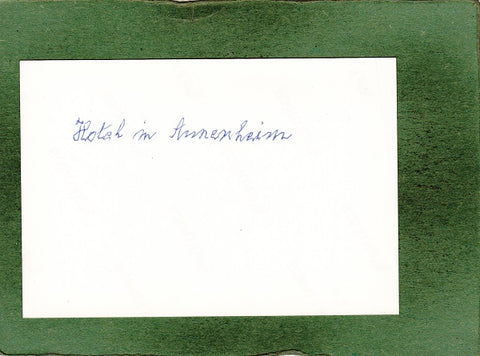 Hotel in Annenheim